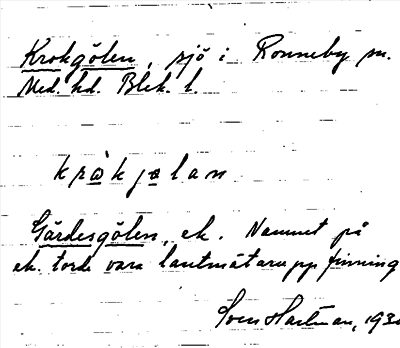 Krokgölen, sjö i Ronneby sn.
Med. hd. Blek. l.
krωkjølan
Gärdesgölen, ek. Namnet på
ek. torde vara lantmätareuppfinning
Sven Hartman, 193